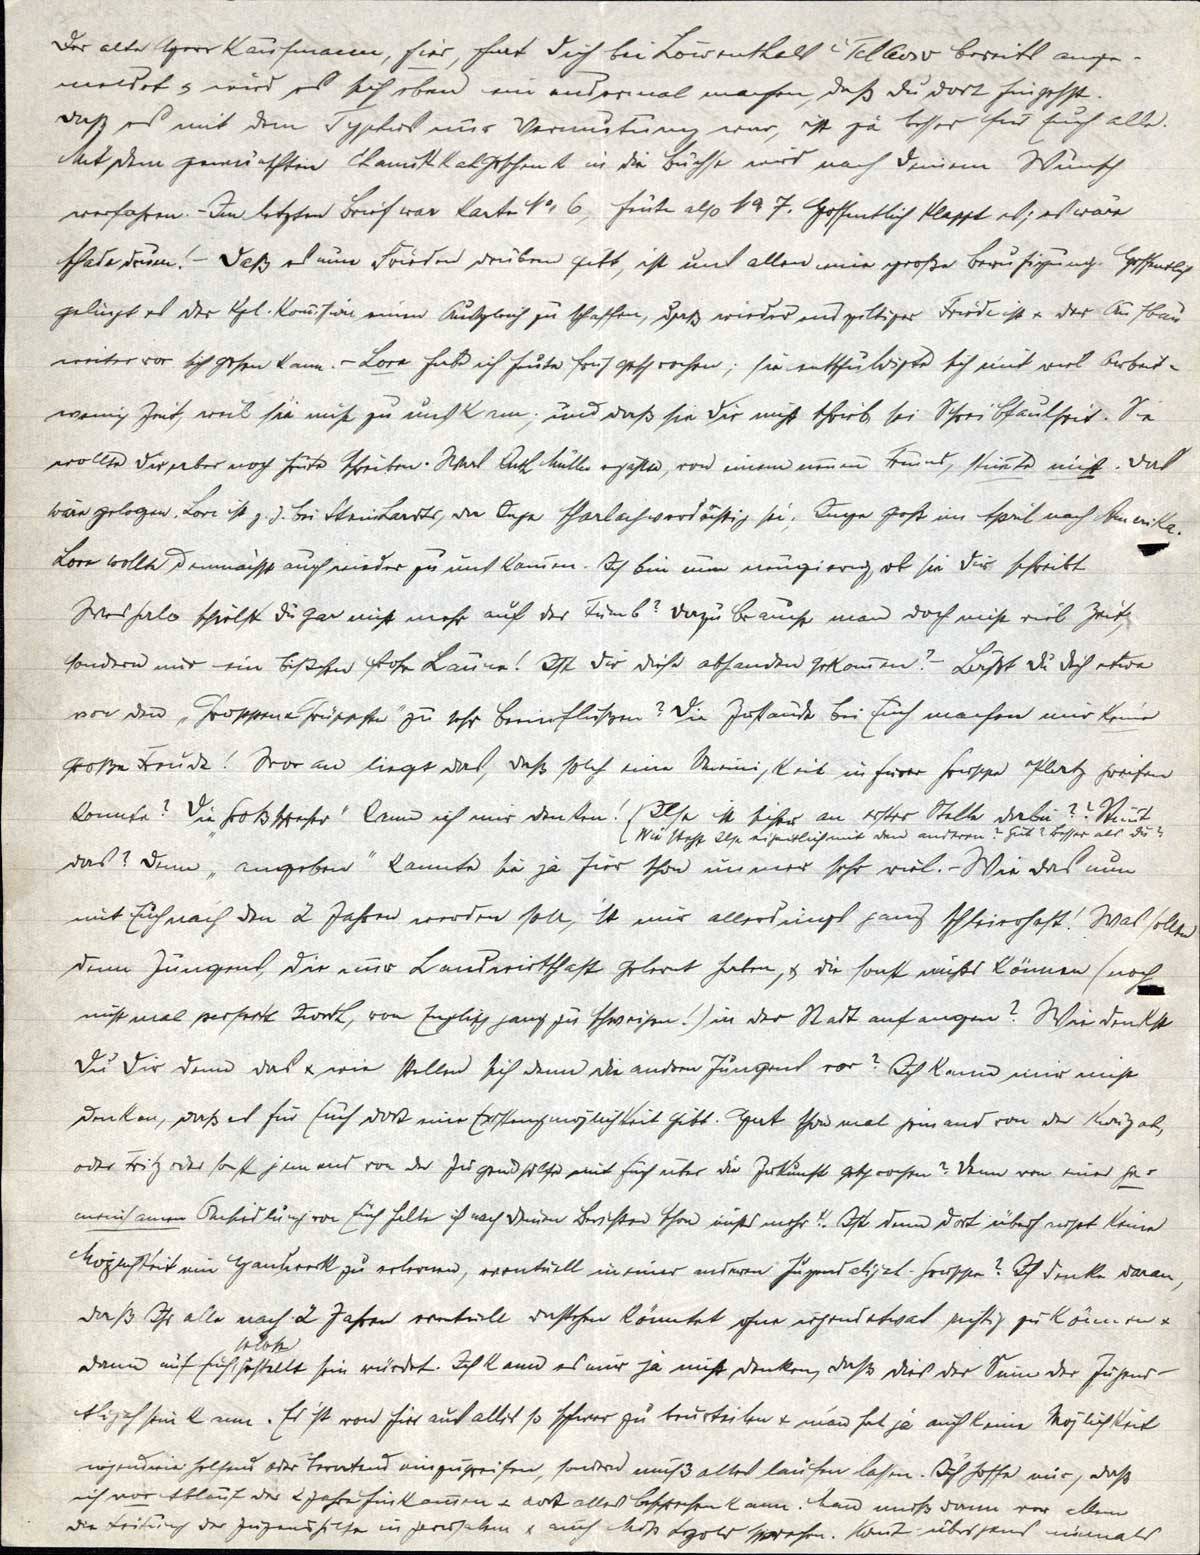 Der alte Herr Kaufmann, hier, hat Dich bei Löwenthals i Tel Aviv bereits ange-
meldet & wird es sich eben ein andermal machen, daß Du dort hingehst.
Daß es mit dem Typhus nur Vermutung war, ist ja besser für Euch alle.
Mit dem gewünschten Chanukkahgeschenk in die Büchse wird nach Deinem Wunsch
verfahren. – Im letzten Brief war Karte No. 6, heute also No 7. Hoffentlich klappt es; es wäre
schade drum! – Daß es nun Frieden drüben gibt, ist uns allen eine große Beruhigung. Hoffentlich
gelingt es der Kgl. Komission einen Ausgleich zu schaffen, daß wieder endgültiger Friede ist & der Aufbau
weiter vor sich gehen kann. – Lore habe ich heute früh gesprochen; sie entschuldigte sich mit viel Arbeit-
wenig Zeit, weil sie nicht zu uns kam; und daß sie Dir nicht schrieb sei Schreibfaulheit. Sie
wollte Dir aber noch heute schreiben. Was Ruth Müller erzählte, von einem neuen Freund, stimmte nicht. Das
wäre gelogen. Lore ist z. Z. bei Steinhardts, da Inge scharlachverdächtig sei. Inge geht im April nach Amerika.
Lore wollte demnächst auch wieder zu uns kommen. Ich bin nun neugierig, ob sie Dir schreibt
Weshalb spielst Du gar nicht mehr auf der Fumb? Dazu braucht man doch nicht viel Zeit,
sondern nur ein bißchen frohe Laune! Ist Dir diese abhanden gekommen? – Läßt Du Dich etwa
von den zu sehr beeinflußen? Die Zustände bei Euch machen mir keine
große Freude! Woran liegt das, daß solch eine Uneinigkeit in Eurer Gruppe Platz greifen
konnte? Die kann ich mir denken! (Ilse ist sicher an erster Stelle dabei?? Stimmt
(Wie steht Ilse eigentlich mit den anderen? Gut? Besser als Du?)
das? Denn „angeben“ konnte sie ja hier schon immer sehr viel. – Wie das nun
mit Euch nach den 2 Jahren werden soll, ist mir allerdings ganz schleierhaft! Was sollen
denn Jungens, die nur Landwirtschaft gelernt haben, & die sonst nichts können (noch
nicht mal perfekt Iwrith, von Englisch ganz zu schweigen!) in der Stadt anfangen? Wie denkst
Du Dir denn das & wie stellen sich denn die andern Jungens vor? Ich kann mir nicht
denken, daß es für Euch dort eine Existenzmöglichkeit gibt. Hat schon mal jemand von der Kwuzah,
oder Fritz oder sonst jemand von der Jugendhilfe mit Euch über die Zukunft gesprochen? Denn von einer ge-
meinsamen Ansiedlung von Euch halte ich nach Deinen Berichten schon nichts mehr!! Ist denn dort überhaupt keine
Möglichkeit ein Handwerk zu erlernen, eventuell in einer anderen Jugendalijah-Gruppe? Ich denke daran,
daß Ihr alle nach 2 Jahren eventuell dastehen könntet ohne irgendetwas richtig zu können &
dann auf Euch selbst gestellt sein würdet. Ich kann es mir ja nicht denken, daß dies der Sinn der Jugend-
Alijah sein kann. Es ist von hier aus alles so schwer zu beurteilen & man hat ja auch keine Möglichkeit
irgendwie helfend oder beratend einzugreifen, sondern muß alles laufen lassen. Ich hoffe nur, daß
ich vor Ablauf der 2 Jahre hinkommen & dort alles besprechen kann. Man muß dann vor allem
die Leitung der Jugendhilfe in Jerusalem & auch Miß Szold sprechen. Kommt übrigens niemals